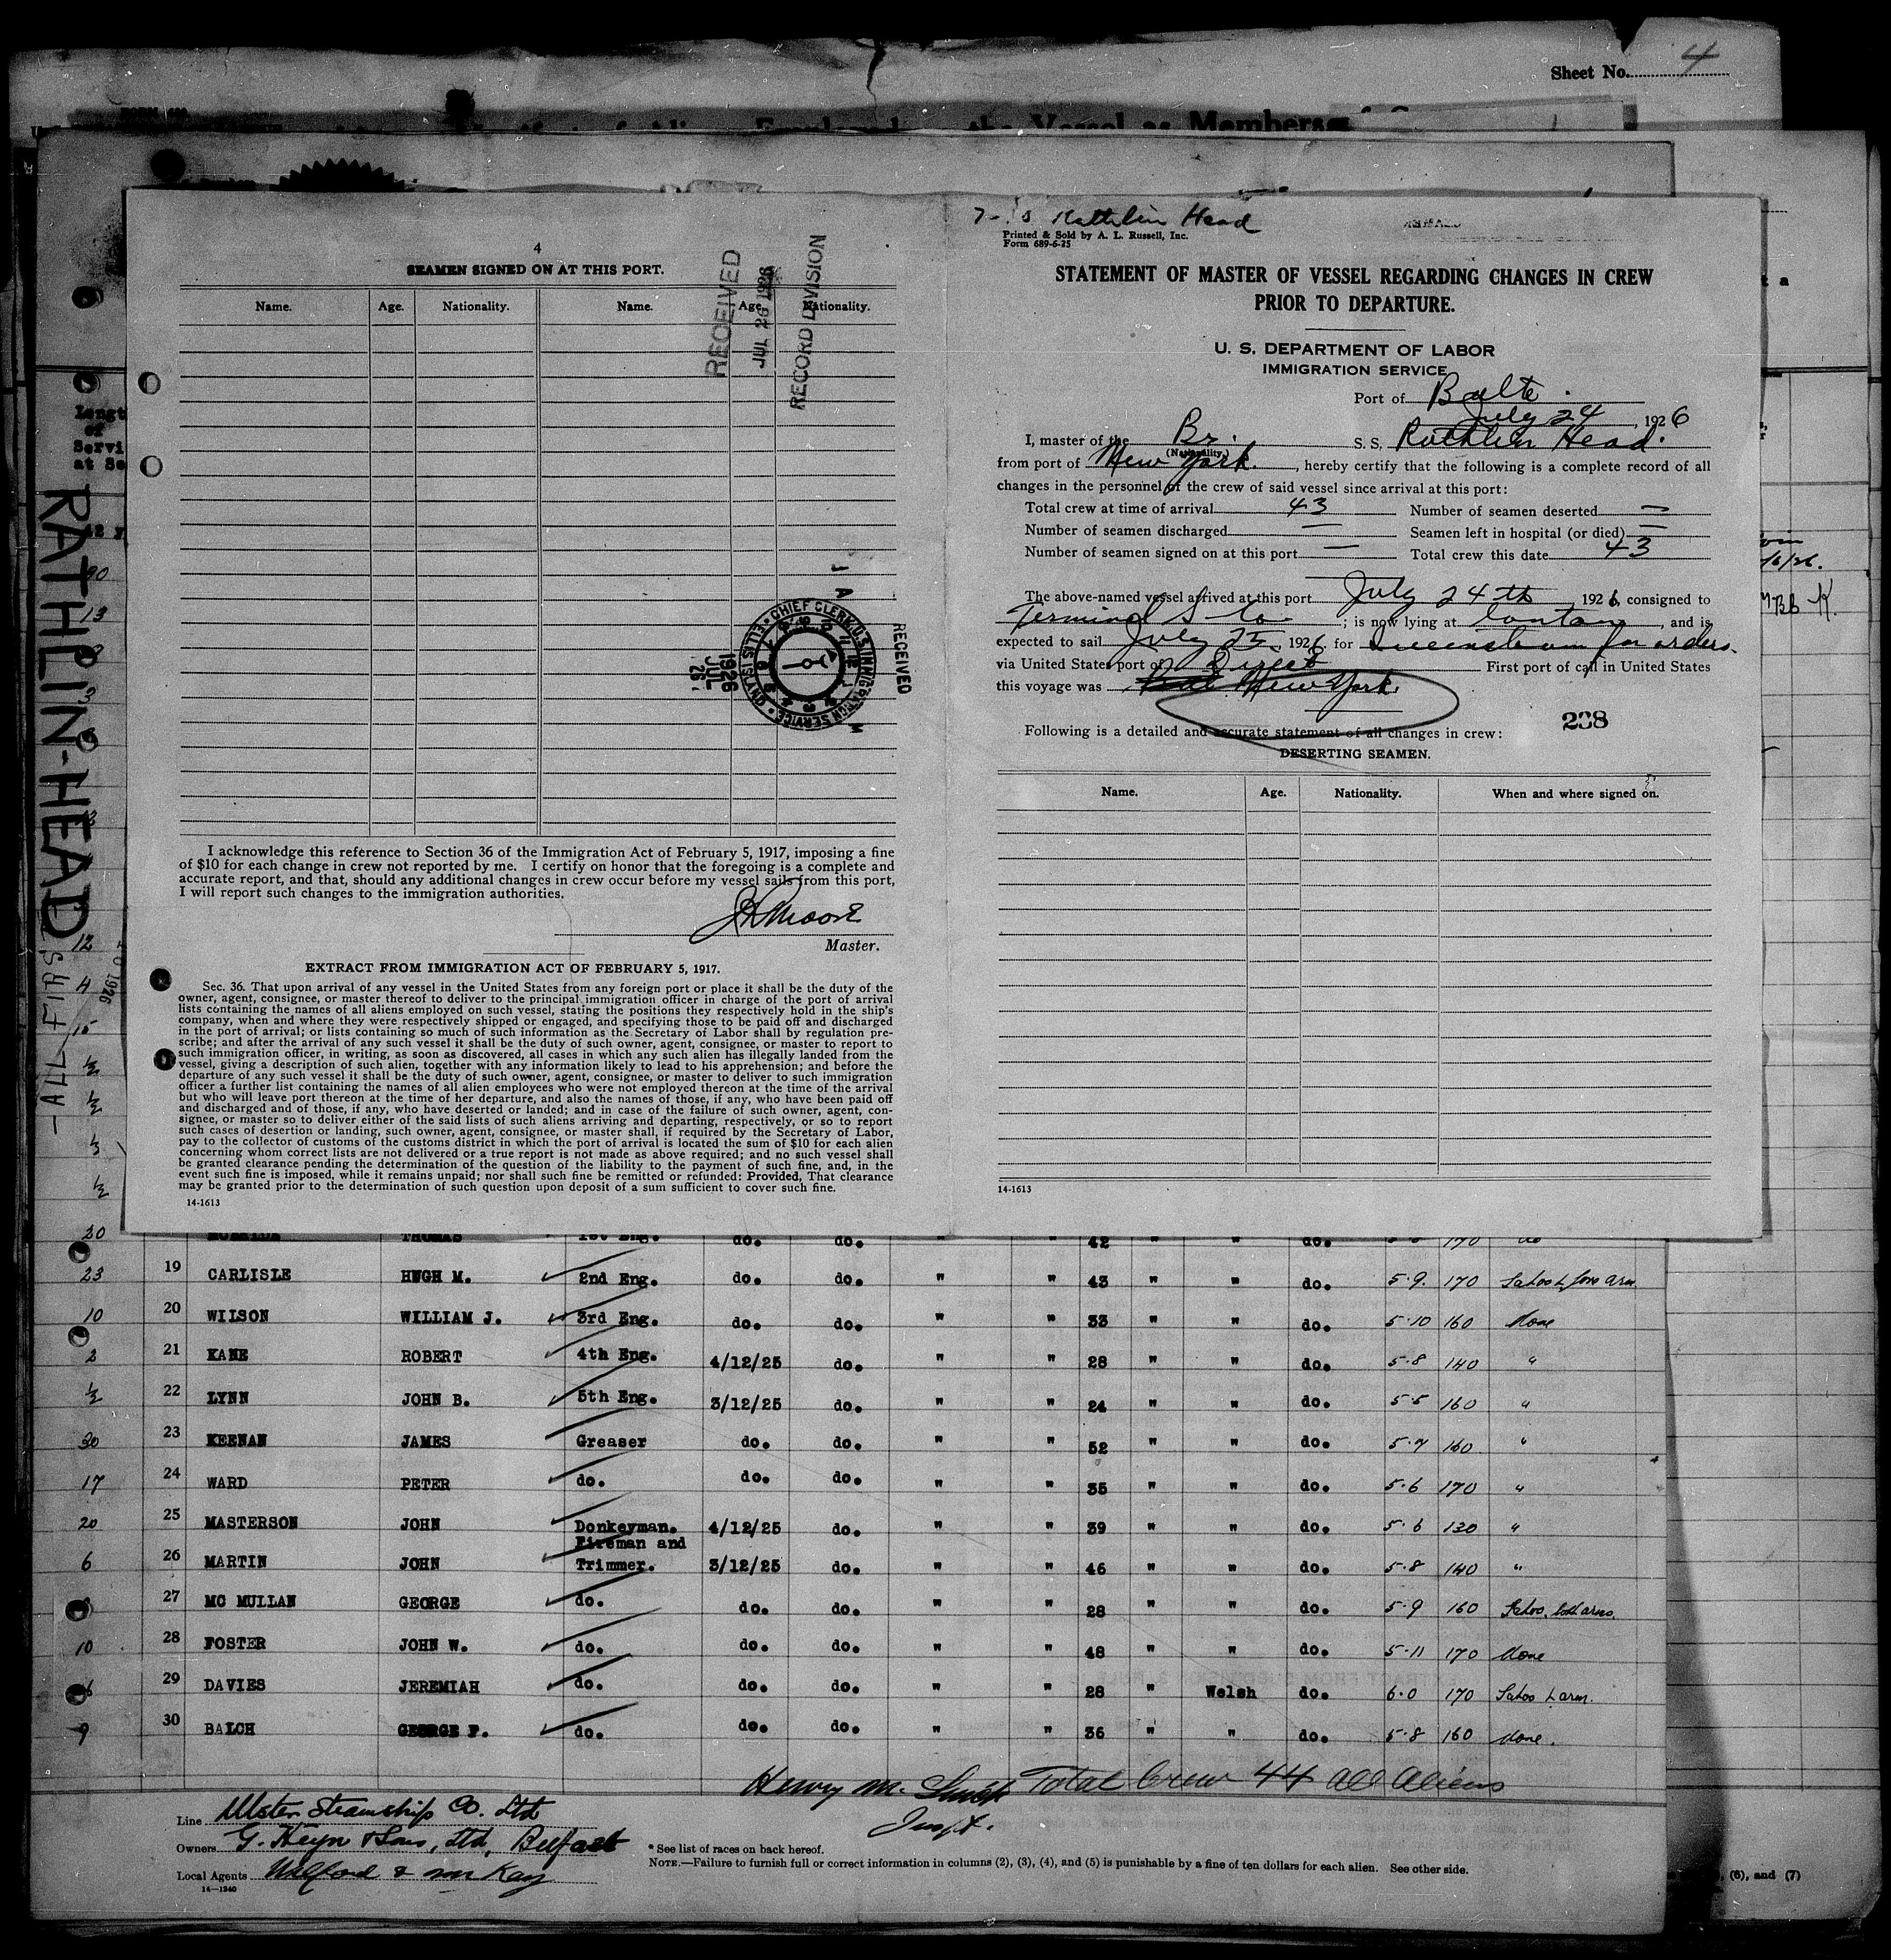 Sheet No. 4
4
SEAMEN SIGNED ON AT THIS PORT.
Name. Age. Nationality. Name. Age. Nationality.
RECEIVED
JUL 26 1926
RECORD DIVISION
RECEIVED
CHIEF CLERK, U.S. IMMIGRATION SERVICE
ELLIS ISLAND
1926
JUL
26
I acknowledge this reference to Section 36 of the Immigration Act of February 5, 1917, imposing a fine
of $10 for each change in crew not reported by me. I certify on honor that the foregoing is a complete and
accurate report, and that, should any additional changes in crew occur before my vessel sails from this port,
I will report such changes to the immigration authorities.
Moore
Master.
EXTRACT FROM IMMIGRATION ACT OF FEBRUARY 5, 1917.
Sec. 36. That upon arrival of any vessel in the United States from any foreign port or place it shall be the duty of the
owner, agent, consignee, or master thereof to deliver to the principal immigration officer in charge of the port of arrival
lists containing the names of all aliens employed on such vessel, stating the positions they respectively hold in the ship's
company, when and where they were respectively shipped or engaged, and specifying those to be paid off and discharged
in the port of arrival; or lists containing so much of such information as the Secretary of Labor shall by regulation pre-
scribe; and after the arrival of any such vessel it shall be the duty of such owner, agent, consignee, or master to report to
such immigration officer, in writing, as soon as discovered, all cases in which any such alien has illegally landed from the
vessel, giving a description of such alien, together with any information likely to lead to his apprehension; and before the
departure of any such vessel it shall be the duty of such owner, agent, consignee, or master to deliver to such immigration
officer a further list containing the names of all alien employees who were not employed thereon at the time of the arrival
but who will leave port thereon at the time of her departure, and also the names of those, if any, who have been paid off
and discharged and of those, if any, who have deserted or landed; and in case of the failure of such owner, agent, con-
signee, or master so to deliver either of the said lists of such aliens arriving and departing, respectively, or so to report
such cases of desertion or landing, such owner, agent, consignee, or master shall, if required by the Secretary of Labor,
pay to the collector of customs of the customs district in which the port of arrival is located the sum of $10 for each alien
concerning whom correct lists are not delivered or a true report is not made as above required; and no such vessel shall
be granted clearance pending the determination of the question of the liability to the payment of such fine, and, in the
event such fine is imposed, while it remains unpaid; nor shall such fine be remitted or refunded: Provided, That clearance
may be granted prior to the determination of such question upon deposit of a sum sufficient to cover such fine.
14-1613
Rathlin Head
Printed & Sold by A. L. Russell, Inc.
Form 689-6-25
STATEMENT OF MASTER OF VESSEL REGARDING CHANGES IN CREW
PRIOR TO DEPARTURE.
U. S. DEPARTMENT OF LABOR
IMMIGRATION SERVICE
Port of Balto.
July 24, 1926
I, master of the Br. S. S. Rathlin Head.
(Nationality.)
from port of New York, hereby certify that the following is a complete record of all
changes in the personnel of the crew of said vessel since arrival at this port:
Total crew at time of arrival 43 Number of seamen deserted —
Number of seamen discharged — Seamen left in hospital (or died) —
Number of seamen signed on at this port — Total crew this date 43
The above-named vessel arrived at this port July 24th, 1926, consigned to
Terminal S Co; is now lying at Canton, and is
expected to sail July 25, 1926, for Queenstown for orders.
via United States port of Direct First port of call in United States
this voyage was New York.
238
Following is a detailed and accurate statement of all changes in crew:
DESERTING SEAMEN.
Name. Age. Nationality. When and where signed on.
14-1613
RATHLIN-HEAD
-ALL FIRS
20 THOMAS 1st Eng. do. do. " " 42 " " do. 170 do
23 19 CARLISLE HUGH M. 2nd Eng. do. do. " " 43 " " do. 5-9. 170 Tatoo L fore arm
10 20 WILSON WILLIAM J. 3rd Eng. do. do. " " 33 " " do. 5-10 160 None
2 21 KANE ROBERT 4th Eng. 4/12/25 do. " " 28 " " do. 5-8 140 "
½ 22 LYNN JOHN B. 5th Eng. 3/12/25 do. " " 24 " " do. 5-5 160 "
30 23 KEENAN JAMES Greaser do. do. " " 52 " " do. 5-7 160 "
17 24 WARD PETER do. do. do. " " 35 " " do. 5-6 170 "
20 25 MASTERSON JOHN Donkeyman. 4/12/25 do. " " 39 " " do. 5-6 130 "
Fireman and
6 26 MARTIN JOHN Trimmer. 3/12/25 do. " " 46 " " do. 5-8 140 "
27 MC MULLAN GEORGE do. do. do. " " 28 " " do. 5-9 160 Tatoo, both arms.
10 28 FOSTER JOHN W. do. do. do. " " 48 " " do. 5-11 170 None
29 DAVIES JEREMIAH do. do. do. " " 28 " Welsh do. 6-0 170 Tatoo L arm.
9 30 BALCH GEORGE F. do. do. do. " " 36 " " do. 5-8 160 None.
Henry M. Smith Total Crew 44 all Aliens
Inspt.
Line Ulster Steamship Co. Ltd
Owners G. Heyn & Sons, Ltd, Belfast
Local Agents
14-1240
* See list of races on back hereof.
NOTE.—Failure to furnish full or correct information in columns (2), (3), (4), and (5) is punishable by a fine of ten dollars for each alien. See other side.
(6), and (7)